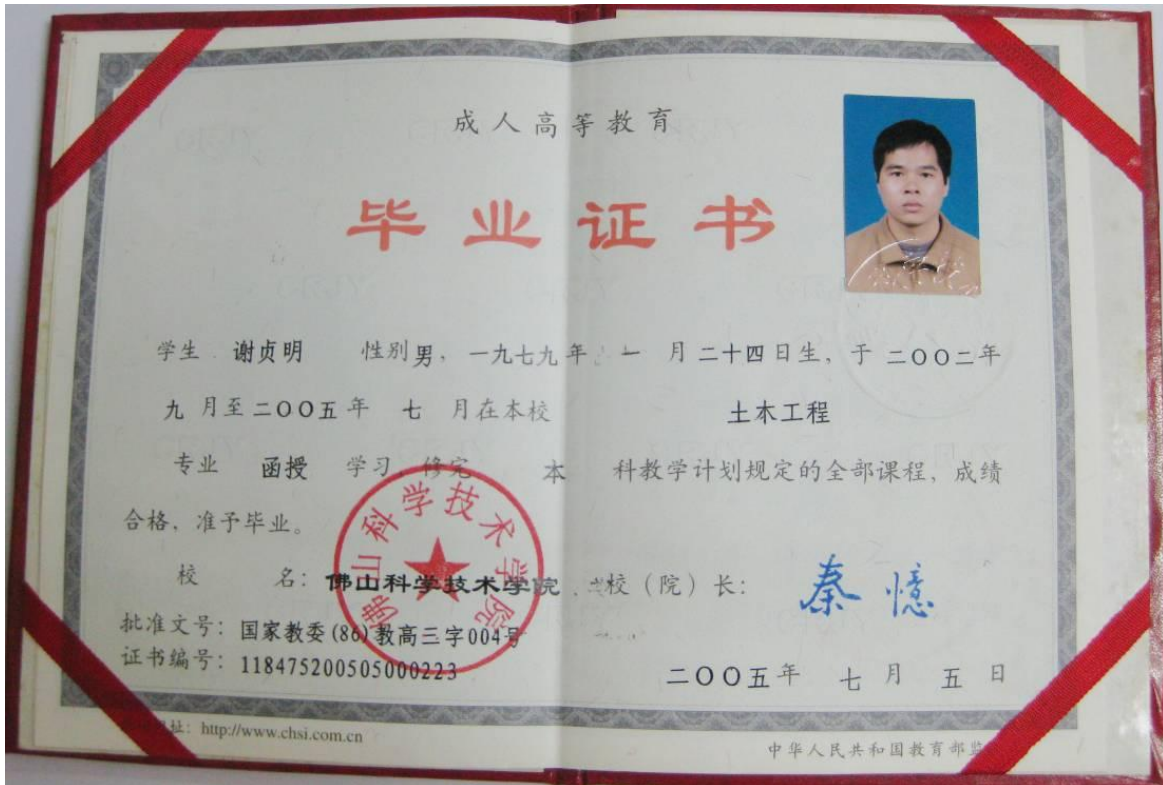 成人高等教育
毕业证书
学生 谢贞明 性别男，一九七九年 一 月二十四日生，于二〇〇二年
九月至二〇〇五年 七 月在本校 土木工程
专业 函授 学习 修完 本 科教学计划规定的全部课程，成绩
合格，准予毕业。
校 名：佛山科学技术学院 校（院）长：秦憶
批准文号：国家教委(86)教高三字004号
证书编号：118475200505000223
二〇〇五年 七 月 五 日
佛山科学技术学院
址：http://www.chsi.com.cn
中华人民共和国教育部监